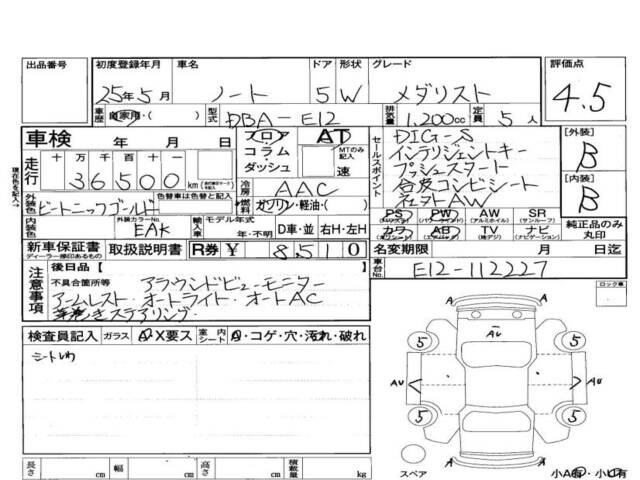 出品番号
初度登録年月
25年5月
車名
ノート
ドア
5
形状
W
グレード
メダリスト
評価点
4.5
車歴
自家用・( )
型式
DBA-E12
排気量
1,200cc
定員
5人
車検 年 月 日
フロア
コラム・
ダッシュ
AT
MTのみ記入
速
セールスポイント
DIG-S
インテリジェントキー
プッシュスタート
合皮コンビシート
社外AW
[外装]
B
[内装]
B
走行
十万千百十一
36500km
冷房
AAC
燃料
ガソリン・軽油・( )
外装色
ビートニックゴールド
色替車は色替前色
内装色
外装カラーNo.
EAK
輸入車
モデル年式
年・不明
D車・並
右H・左H
PS
(パワステ)
PW
(パワーウインド)
AW
(アルミホイル)
SR
(サンルーフ)
カワ
(本革シート)
AB
(エアバッグ)
TV
(地デジ)
ナビ
(ナビゲーション)
純正品のみ
丸印
新車保証書
ディーラー捺印あるもの
取扱説明書
R券 ¥ 8,510
名変期限 月 日迄
車台No.
E12-112227
注意事項
後日品[
不具合箇所等
アラウンドビューモニター
アームレスト・オートライト・オートAC
革巻きステアリング
ロック車
検査員記入
ガラス
A・X要ス
室内シート
A・コゲ・穴・汚れ・破れ
シートしわ
A
AU
5
5
AU
AU
5
5
A
スペア
小A有・小凹有
長さ cm
幅 cm
高さ cm
積載量 kg